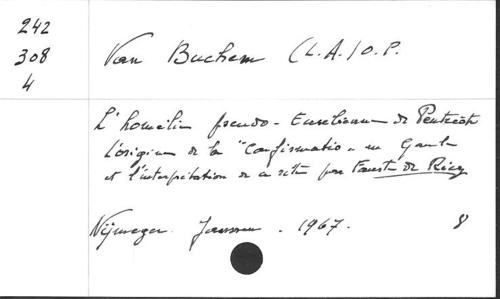 242
308
4
Van Buchem (L.A.) O.P.
L'homélie pseudo-Eusébienne de Pentecôte
L'origine de la "Confirmatio" en Gaule
et l'interprétation de ce rite par Fauste de Riez
Nijmegen. Janssen. 1967. 8